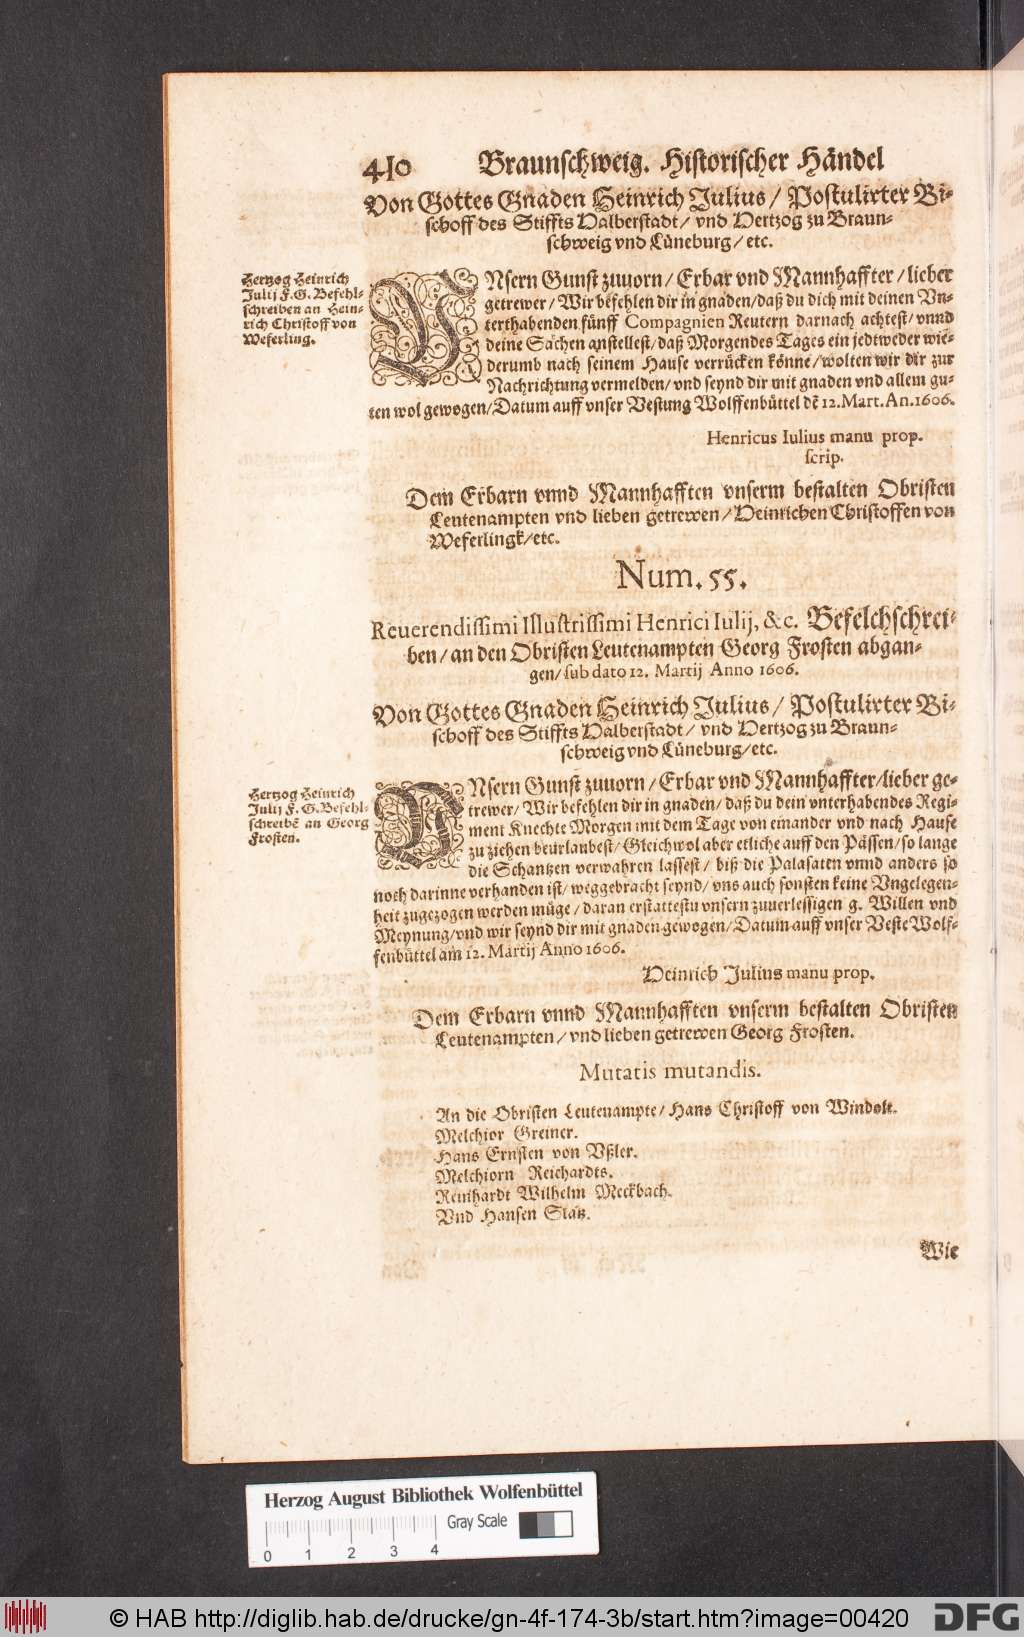 410 Braunschweig. Historischer Händel
Von Gottes Gnaden Heinrich Julius / Postulirter Bi-
schoff des Stiffts Halberstadt / vnd Hertzog zu Braun-
schweig vnd Lüneburg / etc.
Hertzog Heinrich
Julij F. G. Befehl-
schreiben an Hein-
rich Christoff von
Weferling.
VNsern Gunst zuuorn / Erbar vnd Mannhaffter / lieber
getrewer / Wir befehlen dir in gnaden / daß du dich mit deinen Vn-
terthabenden fünff Compagnien Reutern darnach achtest / vnnd
deine Sachen anstellest / daß Morgendes Tages ein jedtweder wie-
derumb nach seinem Hause verrücken könne / wolten wir dir zur
Nachrichtung vermelden / vnd seynd dir mit gnaden vnd allem gu-
ten wol gewogen / Datum auff vnser Vestung Wolffenbüttel dē 12. Mart. An. 1606.
Henricus Iulius manu prop.
scrip.
Dem Erbarn vnnd Mannhafften vnserm bestalten Obristen
Leutenampten vnd lieben getrewen / Heinrichen Christoffen von
Weferlingk / etc.
Num. 55.
Reuerendissimi Illustrissimi Henrici Iulij, &c. Befelchschrei-
ben / an den Obristen Leutenampten Georg Frosten abgan-
gen / sub dato 12. Martij Anno 1606.
Von Gottes Gnaden Heinrich Julius / Postulirter Bi-
schoff des Stiffts Halberstadt / vnd Hertzog zu Braun-
schweig vnd Lüneburg / etc.
Hertzog Heinrich
Julij F. G. Befehl-
schreibē an Georg
Frosten.
VNsern Gunst zuuorn / Erbar vnd Mannhaffter / lieber ge-
trewer / Wir befehlen dir in gnaden / daß du dein vnterhabendes Regi-
ment Knechte Morgen mit dem Tage von einander vnd nach Hause
zu ziehen beurlaubest / Gleichwol aber etliche auff den Pässen / so lange
die Schantzen verwahren lassest / biß die Palasaten vnnd anders so
noch darinne verhanden ist / weggebracht seynd / vns auch sonsten keine Vngelegen-
heit zugezogen werden müge / daran erstattestu vnsern zuuerlessigen g. Willen vnd
Meynung / vnd wir seynd dir mit gnaden gewogen / Datum auff vnser Veste Wolf-
fenbüttel am 12. Martij Anno 1606.
Heinrich Julius manu prop.
Dem Erbarn vnnd Mannhafften vnserm bestalten Obristen
Leutenampten / vnd lieben getrewen Georg Frosten.
Mutatis mutandis.
An die Obristen Leutenampte / Hans Christoff von Windolt.
Melchior Greiner.
Hans Ernsten von Vßler.
Melchiorn Reichardts.
Reinhardt Wilhelm Meckbach.
Vnd Hansen Slatz.
Wie
Herzog August Bibliothek Wolfenbüttel
Gray Scale
0 1 2 3 4
© HAB http://diglib.hab.de/drucke/gn-4f-174-3b/start.htm?image=00420 DFG